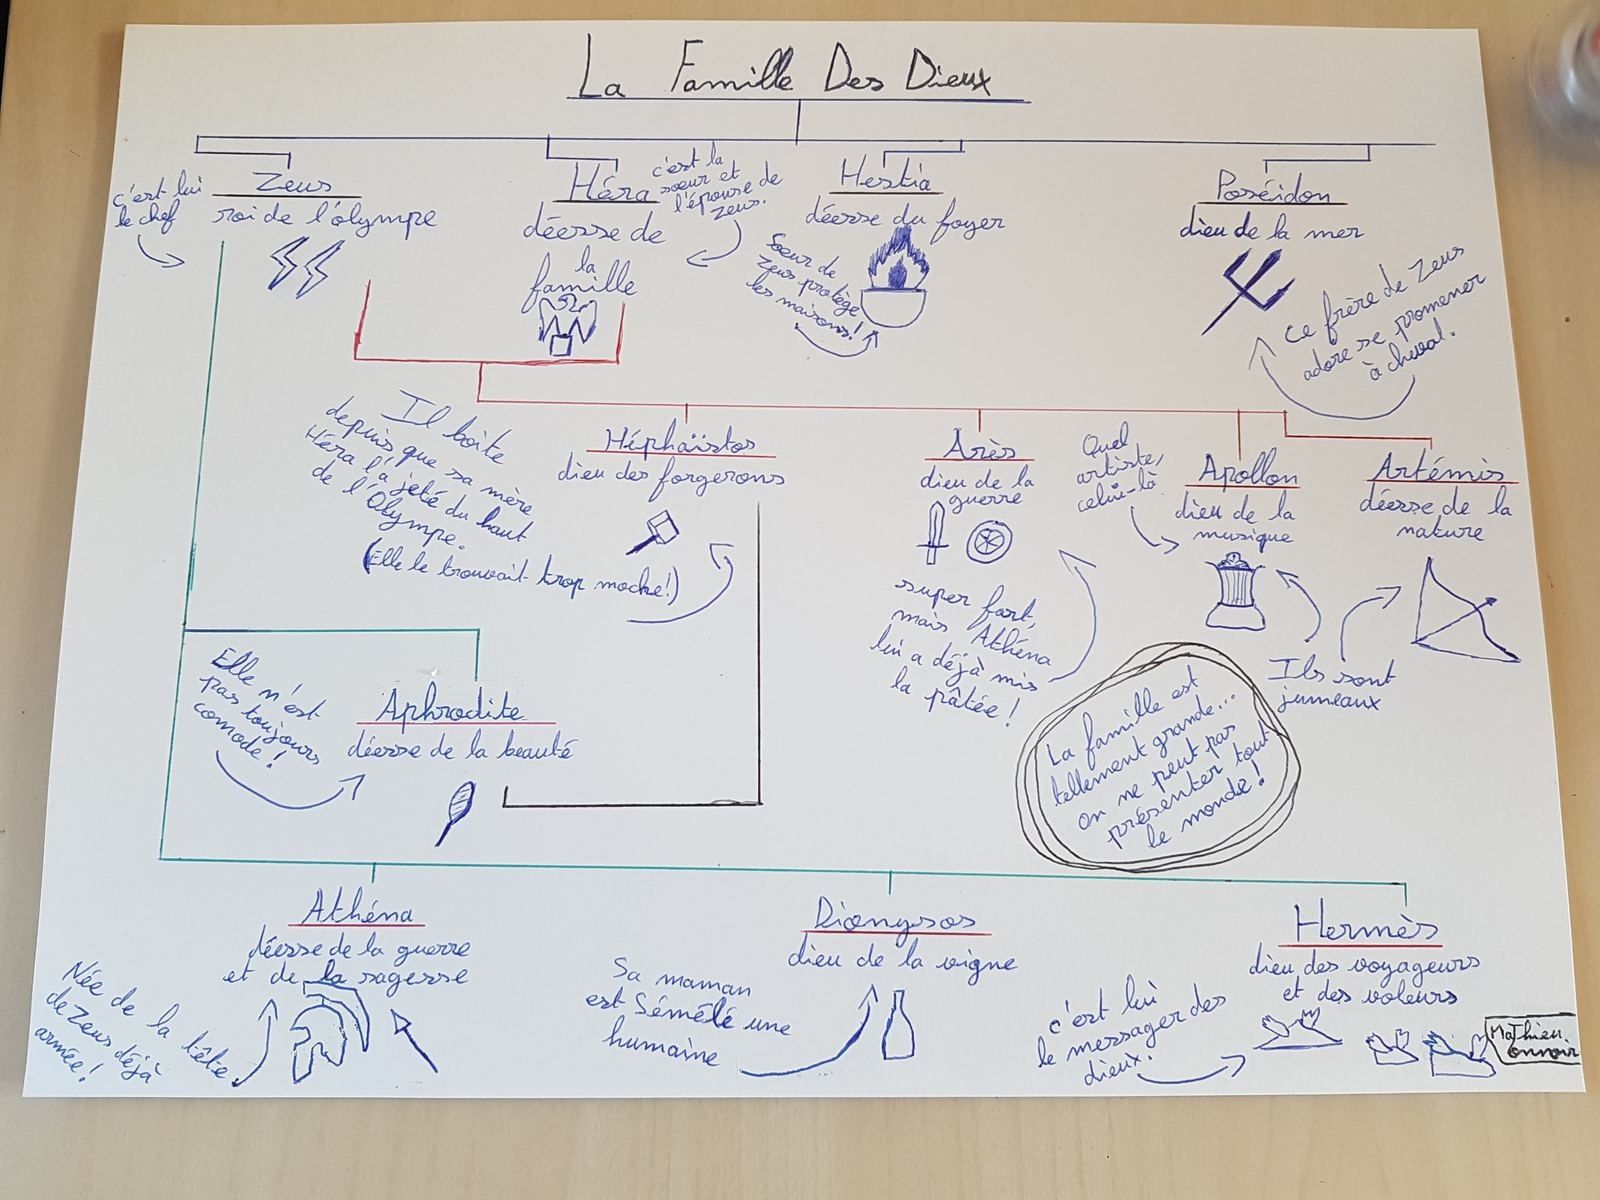 La Famille Des Dieux
c'est lui
le chef
Zeus
roi de l'olympe
Héra
déesse de
la
famille
c'est la
sœur et
l'épouse de
Zeus.
Hestia
déesse du foyer
Sœur de
Zeus protège
les maisons!
Poséidon
dieu de la mer
Ce frère de Zeus
adore se promener
à cheval.
Il boite
depuis que sa mère
Héra l'a jeté du haut
de l'Olympe.
(Elle le trouvait trop moche!)
Héphaïstos
dieu des forgerons
Arès
dieu de la
guerre
super fort,
mais Athéna
lui a déjà mis
la pâtée!
Quel
artiste,
celui-là
Apollon
dieu de la
musique
Artémis
déesse de la
nature
Ils sont
jumeaux
Elle n'est
pas toujours
comode!
Aphrodite
déesse de la beauté
La famille est
tellement grande...
on ne peut pas
présenter tout
le monde!
Athéna
déesse de la guerre
et de la sagesse
Née de la tête
de Zeus déjà
armée!
Dionysos
dieu de la vigne
Sa maman
est Sémélé une
humaine
Hermès
dieu des voyageurs
et des voleurs
c'est lui
le messager des
dieux.
Mathieu